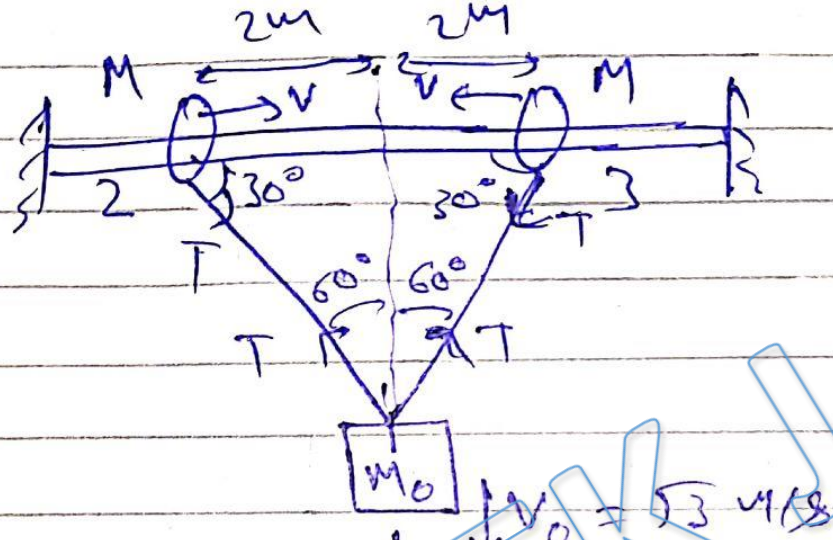 2m 2m
M V V M
2 30° 30° 3
T T
60° 60°
T T
M₀
V₀ = √3 m/s